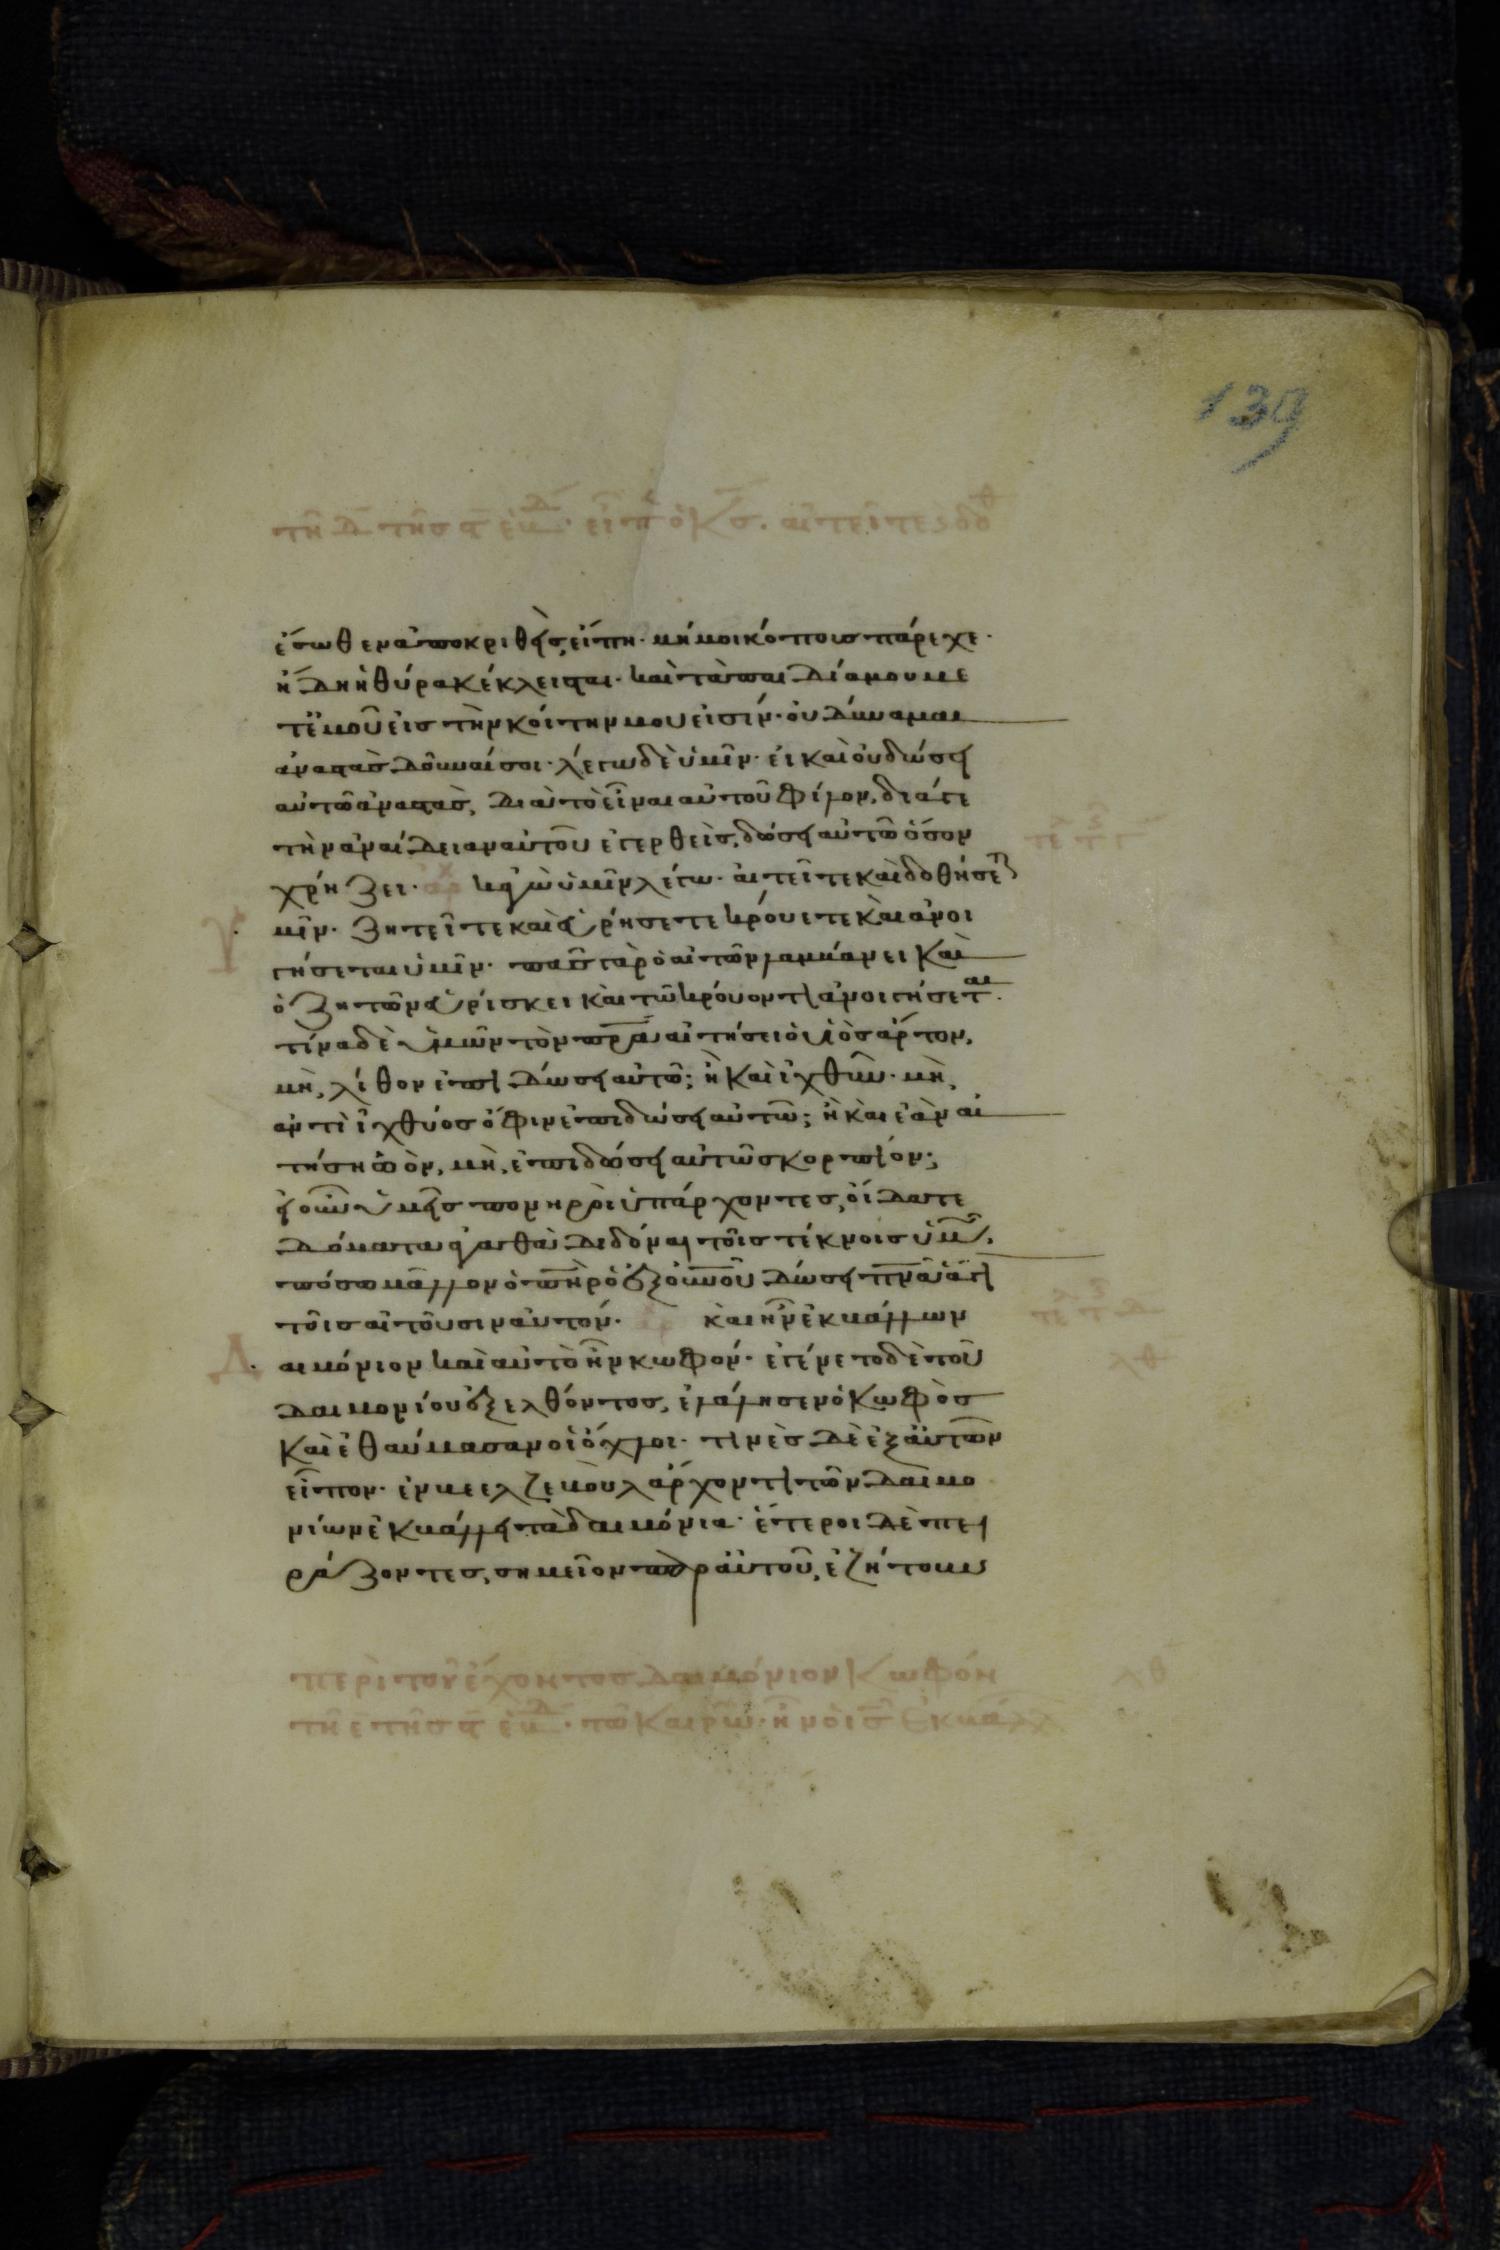 139
τῆ δ τῆς ϛ ἑβδ. εἶπ ὁ κς. αἰτεῖτε, δοθ
ἔσωθεν ἀποκριθεὶς, εἴπη· μή μοι κόπους πάρεχε·
ἤδη ἡ θύρα κέκλεισται· καὶ τὰ παιδία μου με
τ' ἐμοῦ εἰς τὴν κοίτην μου εἰσίν· οὐ δύναμαι
ἀναστὰς δοῦναί σοι· λέγω δὲ ὑμῖν· εἰ καὶ οὐ δώσει
αὐτῶ ἀναστὰς, διὰ τὸ εἶναι αὐτοῦ φίλον, διά γε
τὴν ἀναίδειαν αὐτοῦ ἐγερθεὶς, δώσει αὐτῶ ὅσον
χρήζει· ἀρ κἀγὼ ὑμῖν λέγω· αἰτεῖτε καὶ δοθήσετ ὑ
μῖν· ζητεῖτε καὶ εὑρήσετε κρούετε καὶ ἀνοι
γήσεται ὑμῖν· πᾶς γὰρ ὁ αἰτῶν λαμβάνει καὶ
ὁ ζητῶν εὑρίσκει καὶ τῶ κρούοντι ἀνοιγήσεται·
τίνα δὲ ὑμῶν τὸν πρα αἰτήσει ὁ υἱὸς ἄρτον,
μὴ, λίθον ἐπιδώσει αὐτῶ; ἢ καὶ ἰχθῦν· μὴ,
ἀντὶ ἰχθύος ὄφιν ἐπιδώσει αὐτῶ; ἢ καὶ ἐὰν αἰ
τήση ὠὸν, μὴ, ἐπιδώσει αὐτῶ σκορπίον;
εἰ οὖν ὑμεῖς πονηροὶ ὑπάρχοντες, οἴδατε
δόματα ἀγαθὰ διδόναι τοῖς τέκνοις ὑμῶν,
πόσω μᾶλλον ὁ πηρ ὁ ἐξ οὐνοῦ δώσει πνα ἅγι
τοῖς αἰτοῦσιν αὐτόν· καὶ ἦν ἐκβάλλων
δαιμόνιον καὶ αὐτὸ ἦν κωφόν· ἐγένετο δὲ τοῦ
δαιμονίου ἐξελθόντος, ἐλάλησεν ὁ κωφὸς
καὶ ἐθαύμασαν οἱ ὄχλοι· τινὲς δὲ ἐξ αὐτῶν
εἶπον· ἐν βεελζεβοὺλ ἄρχοντι τῶν δαιμο
νίων ἐκβάλλει τὰ δαιμόνια· ἕτεροι δὲ πει
ράζοντες, σημεῖον παρ αὐτοῦ, ἐζήτουν
περὶ τοῦ ἔχοντος δαιμόνιον κωφόν λθ
τῆ ε τῆς ϛ ἑβδ. τῶ καιρῶ. ἦν ὁ ις ἐκβάλλ